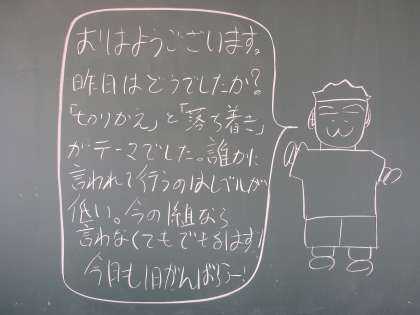 おはようございます。
昨日はどうでしたか?
「切りかえ」と「落ち着き」
がテーマでした。誰かに
言われて行うのはレベルが
低い。今の1組なら
言わなくてもできるはず!
今日も1日がんばろう!